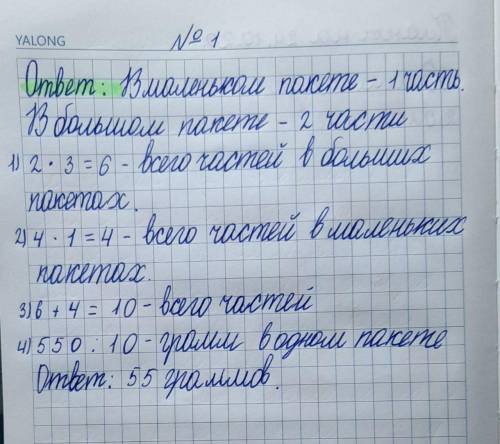 YALONG
№ 1
Ответ: В маленьком пакете - 1 часть.
В большом пакете - 2 части
1) 2 · 3 = 6 - всего частей в больших
пакетах.
2) 4 · 1 = 4 - всего частей в маленьких
пакетах.
3) 6 + 4 = 10 - всего частей
4) 550 : 10 - грамм в одном пакете
Ответ: 55 граммов.